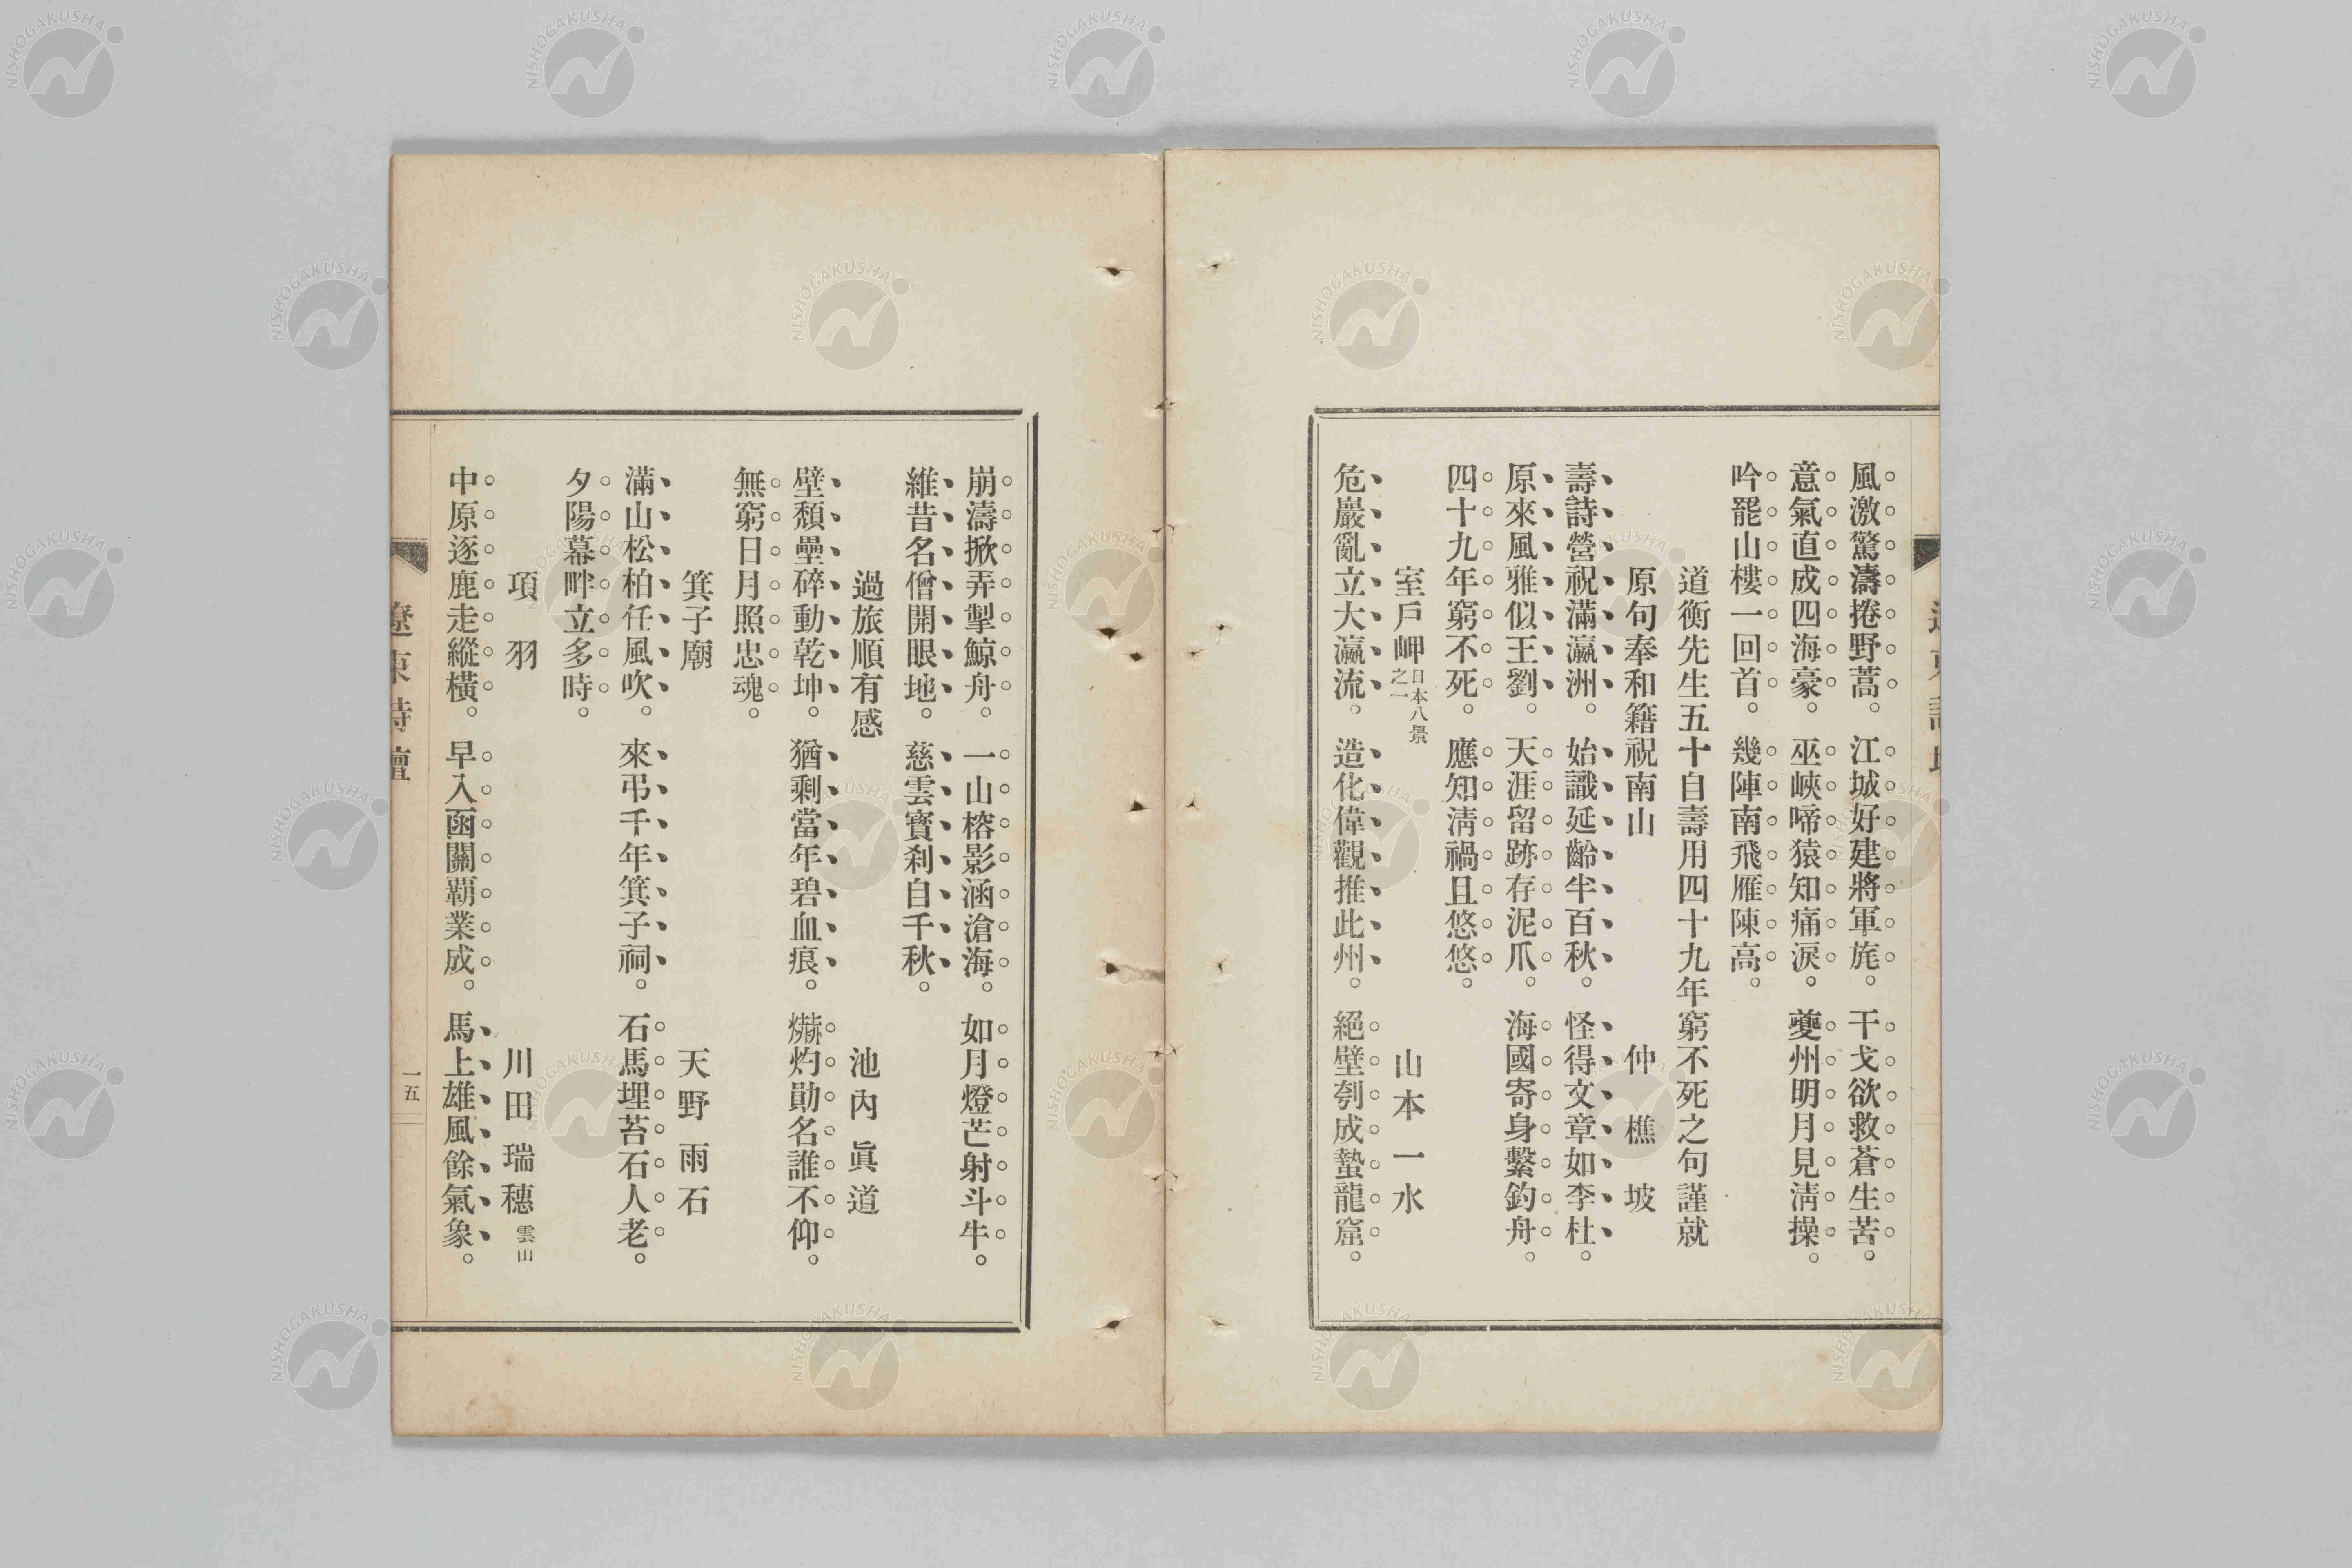 風激驚濤捲野蒿。江城好建將軍旄。干戈欲救蒼生苦。
意氣直成四海豪。巫峽啼猿知痛淚。夔州明月見淸操。
吟罷山樓一回首。幾陣南飛雁陳高。
道衡先生五十自壽用四十九年窮不死之句謹就
原句奉和籍祝南山 仲樵坡
壽詩營祝滿瀛洲。始識延齡半百秋。怪得文章如李杜。
原來風雅似王劉。天涯留跡存泥爪。海國寄身繫釣舟。
四十九年窮不死。應知淸禍且悠悠。
室戶岬 日本八景之一 山本一水
危巖亂立大瀛流。造化偉觀推此州。絕壁刳成蟄龍窟。
崩濤掀弄掣鯨舟。一山榕影涵滄海。如月燈芒射斗牛。
維昔名僧開眼地。慈雲寶刹自千秋。
過旅順有感 池內眞道
壁頹壘碎動乾坤。猶剩當年碧血痕。爀灼勛名誰不仰。
無窮日月照忠魂。
箕子廟 天野雨石
滿山松柏任風吹。來弔千年箕子祠。石馬埋苔石人老。
夕陽幕畔立多時。
項羽 川田瑞穗 雲山
中原逐鹿走縱橫。早入函關覇業成。馬上雄風餘氣象。
遼東詩壇
一五
NISHOGAKUSHA